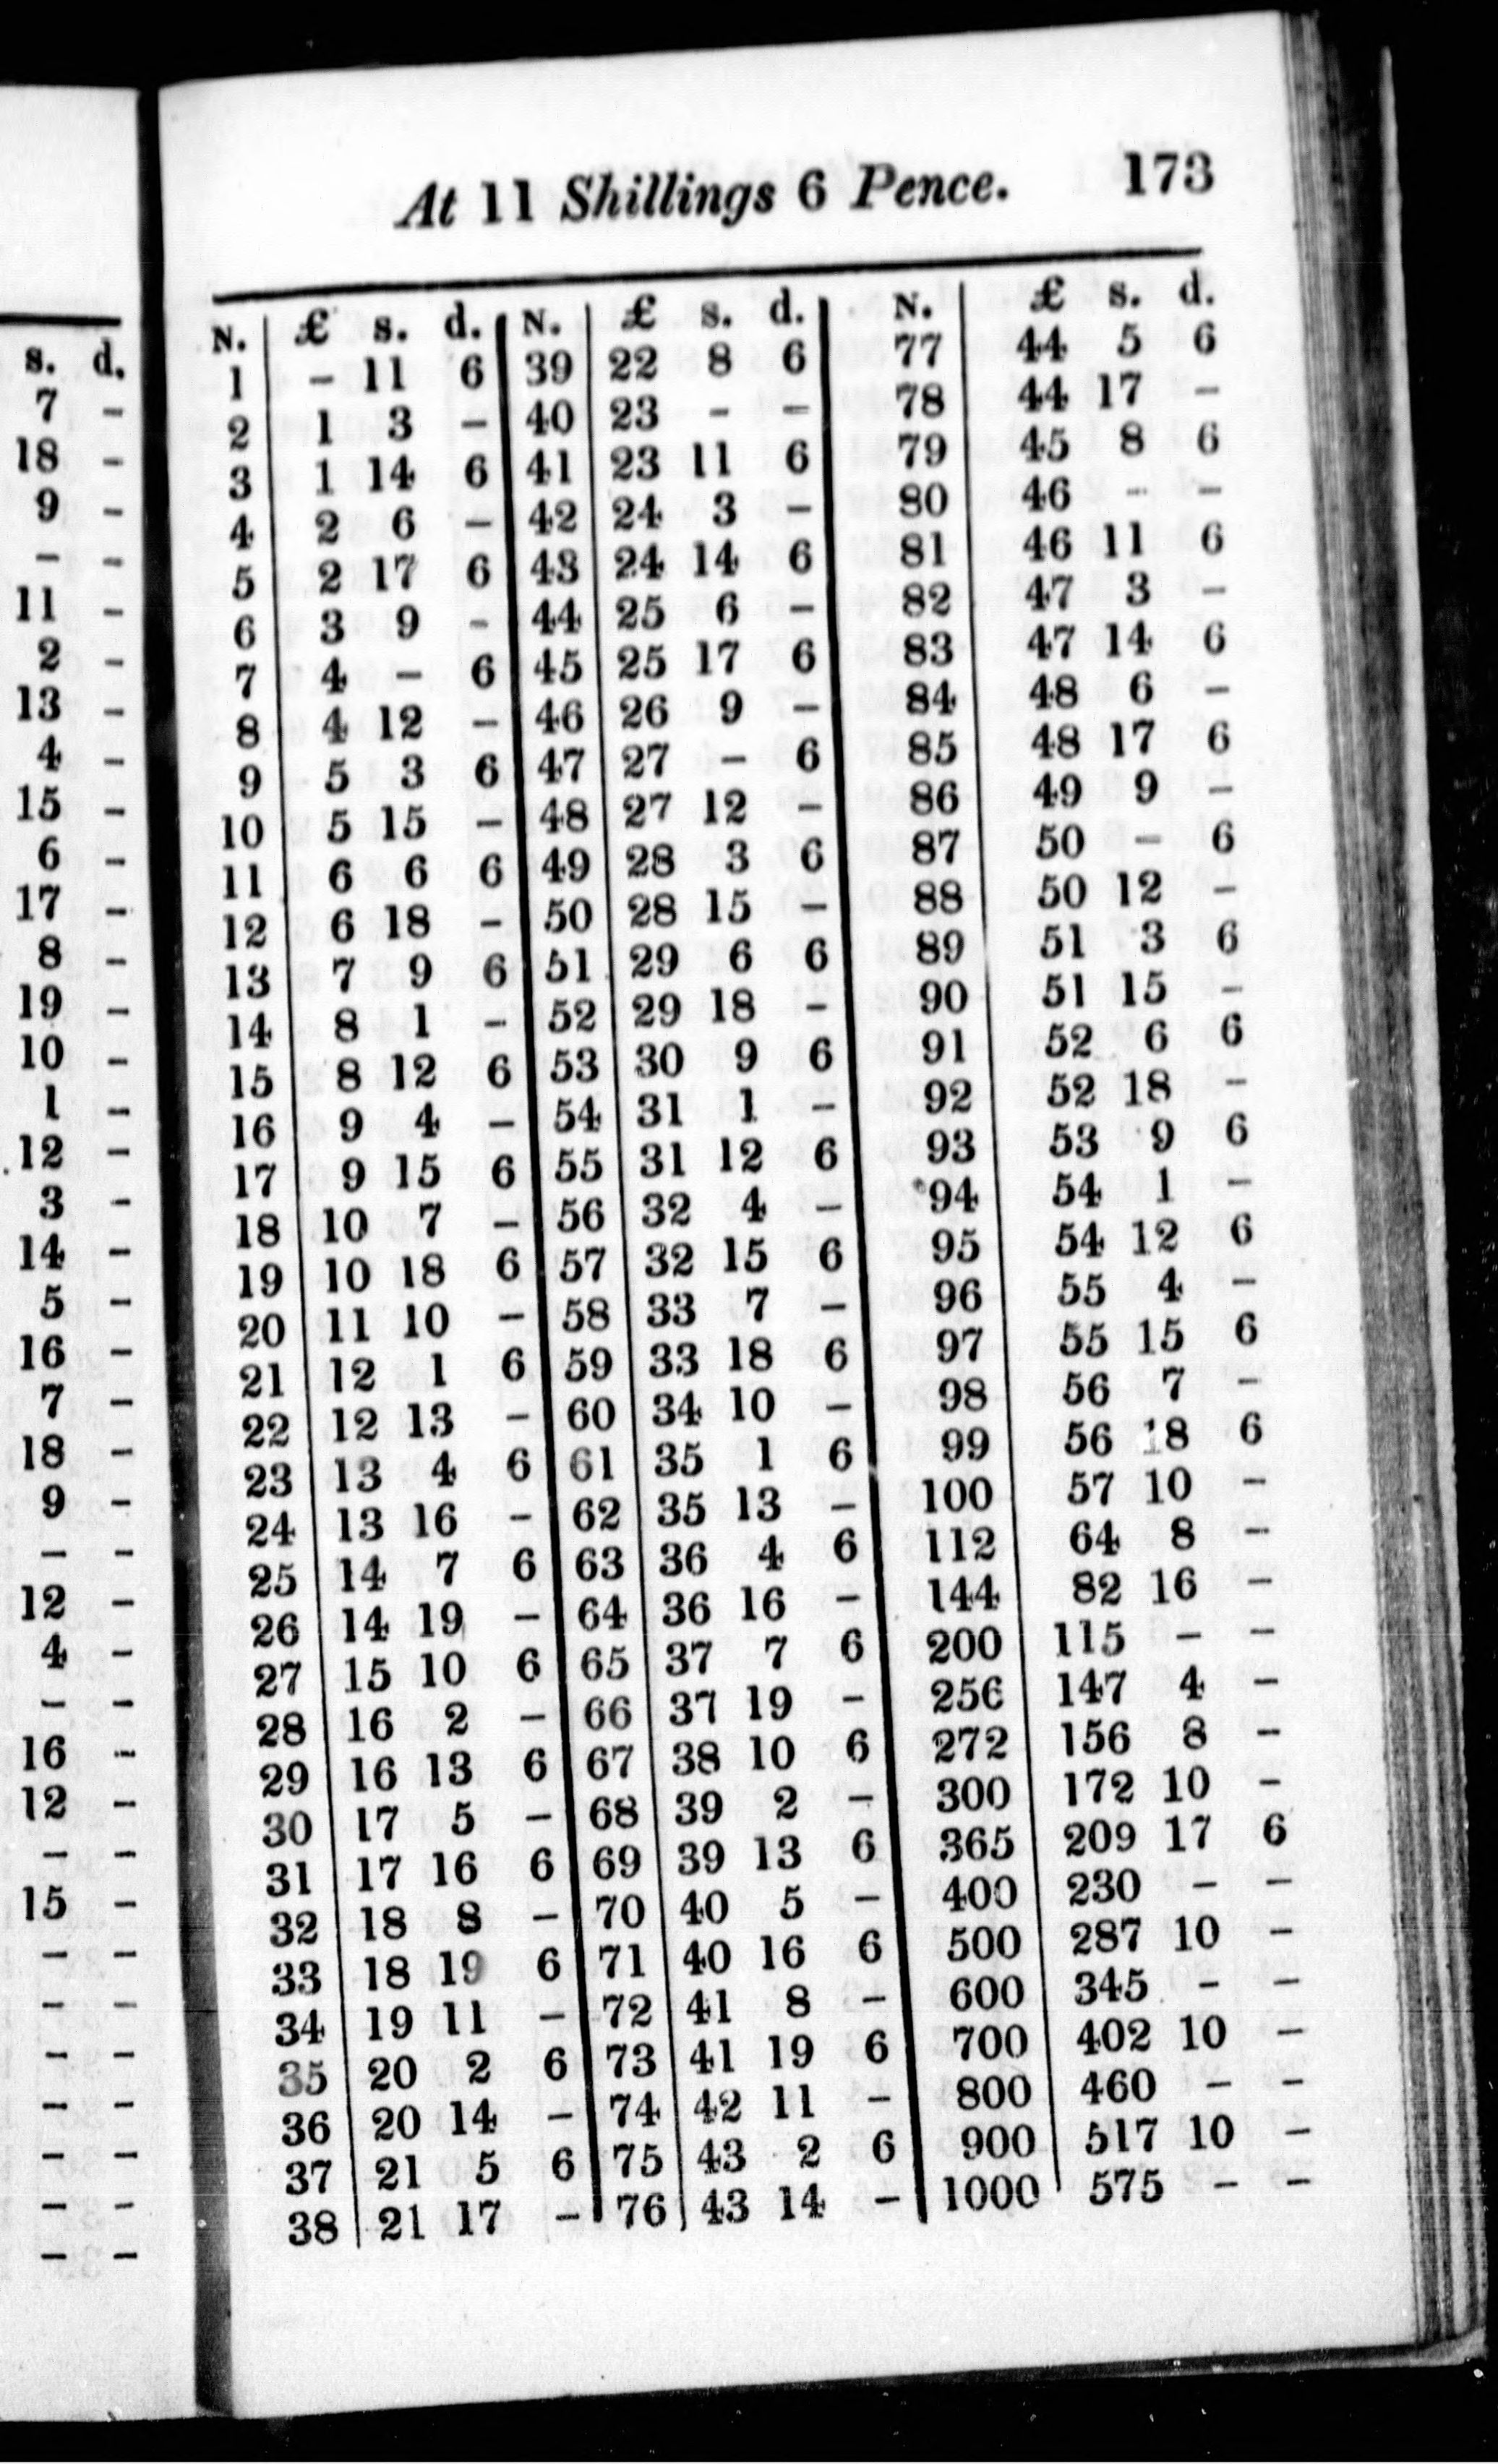 s. d.
7 -
18 -
9 -
- -
11 -
2 -
13 -
4 -
15 -
6 -
17 -
8 -
19 -
10 -
1 -
12 -
3 -
14 -
5 -
16 -
7 -
18 -
9 -
- -
12 -
4 -
- -
16 -
12 -
- -
15 -
- -
- -
- -
- -
- -
- -
- -
At 11 Shillings 6 Pence. 173
N. £ s. d. N. £ s. d. N. £ s. d.
1 - 11 6 39 22 8 6 77 44 5 6
2 1 3 - 40 23 - - 78 44 17 -
3 1 14 6 41 23 11 6 79 45 8 6
4 2 6 - 42 24 3 - 80 46 - -
5 2 17 6 43 24 14 6 81 46 11 6
6 3 9 - 44 25 6 - 82 47 3 -
7 4 - 6 45 25 17 6 83 47 14 6
8 4 12 - 46 26 9 - 84 48 6 -
9 5 3 6 47 27 - 6 85 48 17 6
10 5 15 - 48 27 12 - 86 49 9 -
11 6 6 6 49 28 3 6 87 50 - 6
12 6 18 - 50 28 15 - 88 50 12 -
13 7 9 6 51 29 6 6 89 51 3 6
14 8 1 - 52 29 18 - 90 51 15 -
15 8 12 6 53 30 9 6 91 52 6 6
16 9 4 - 54 31 1 - 92 52 18 -
17 9 15 6 55 31 12 6 93 53 9 6
18 10 7 - 56 32 4 - 94 54 1 -
19 10 18 6 57 32 15 6 95 54 12 6
20 11 10 - 58 33 7 - 96 55 4 -
21 12 1 6 59 33 18 6 97 55 15 6
22 12 13 - 60 34 10 - 98 56 7 -
23 13 4 6 61 35 1 6 99 56 18 6
24 13 16 - 62 35 13 - 100 57 10 -
25 14 7 6 63 36 4 6 112 64 8 -
26 14 19 - 64 36 16 - 144 82 16 -
27 15 10 6 65 37 7 6 200 115 - -
28 16 2 - 66 37 19 - 256 147 4 -
29 16 13 6 67 38 10 6 272 156 8 -
30 17 5 - 68 39 2 - 300 172 10 -
31 17 16 6 69 39 13 6 365 209 17 6
32 18 8 - 70 40 5 - 400 230 - -
33 18 19 6 71 40 16 6 500 287 10 -
34 19 11 - 72 41 8 - 600 345 - -
35 20 2 6 73 41 19 6 700 402 10 -
36 20 14 - 74 42 11 - 800 460 - -
37 21 5 6 75 43 2 6 900 517 10 -
38 21 17 - 76 43 14 - 1000 575 - -